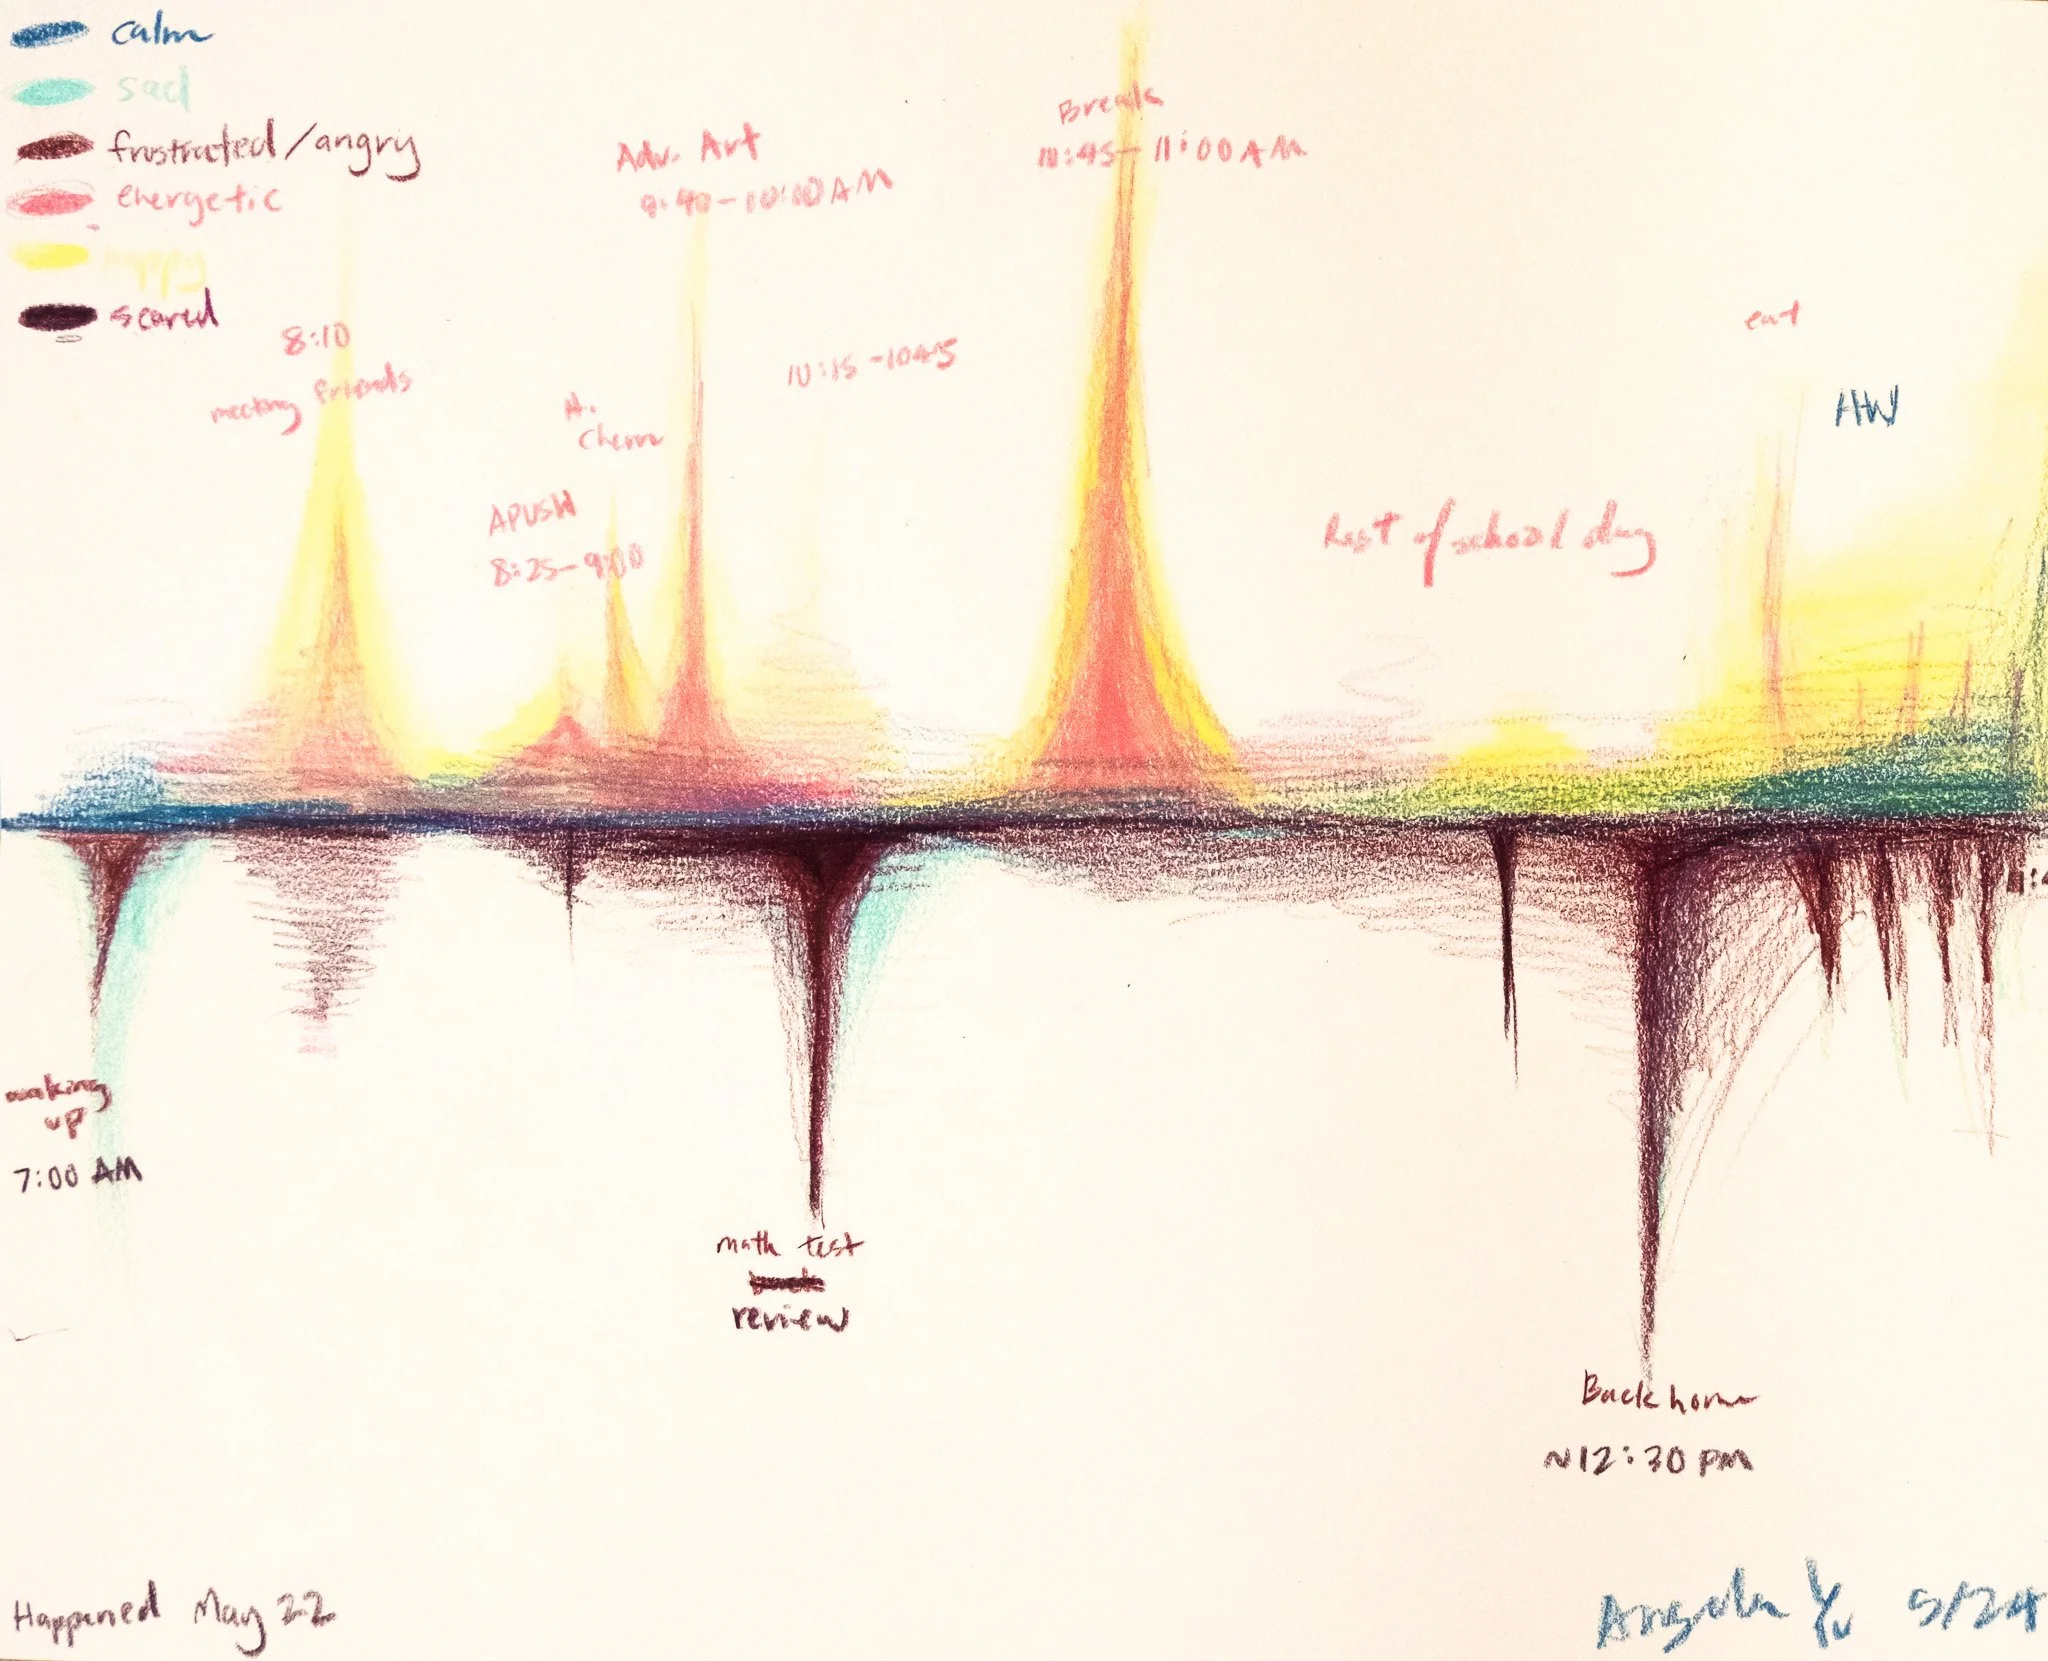 calm
sad
frustrated/angry
energetic
happy
scared
8:10
meeting friends
APUSH
8:25-9:00
H.
Chem
Adv. Art
9:40-10:10 AM
10:15-1045
Break
10:45-11:00 AM
Rest of school day
eat
HW
waking
up
7:00 AM
math test
review
Back home
~12:30 PM
Happened May 22
Angela Yu 5/24